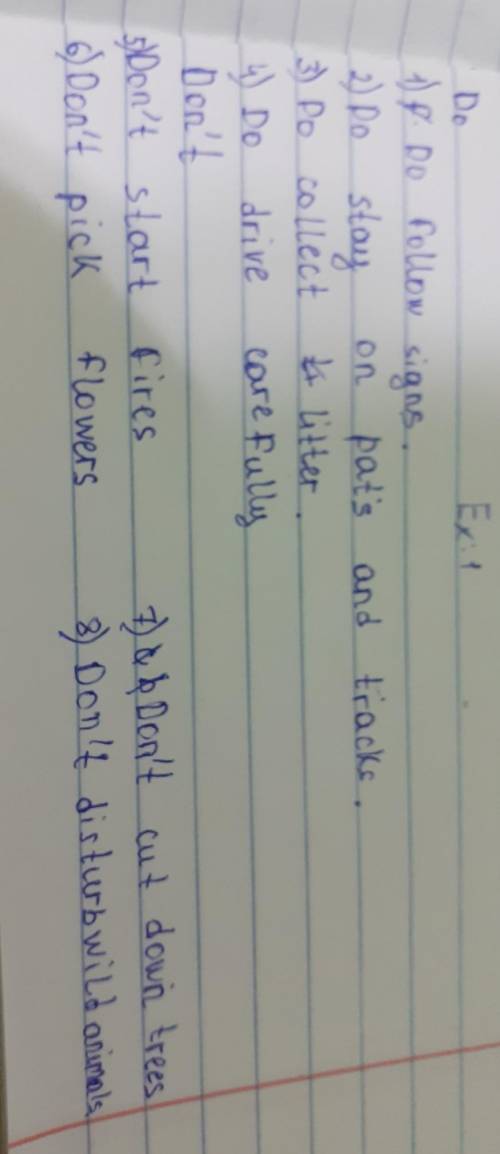 Ex: 1
Do
1) Do follow signs.
2) Do stay on pat's and tracks.
3) Do collect litter.
4) Do drive carefully
Don't
5) Don't start fires
6) Don't pick flowers
7) Don't cut down trees
8) Don't disturb wild animals.